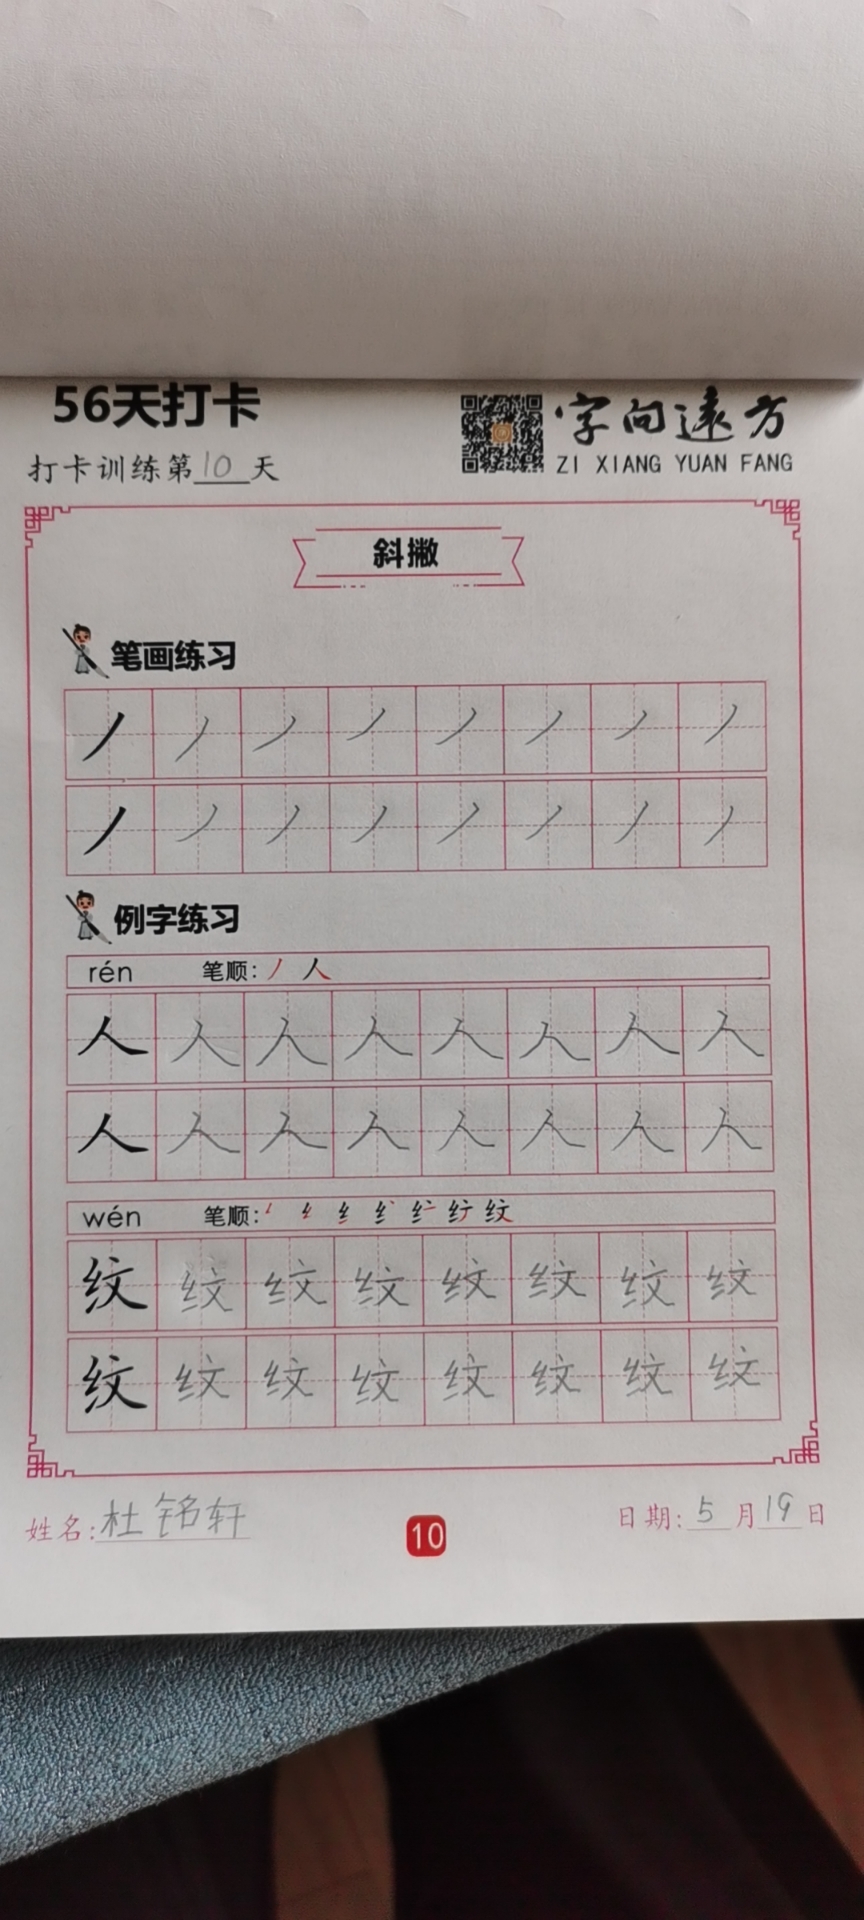 56天打卡
字向遠方
打卡训练第10天
ZI XIANG YUAN FANG
斜撇
笔画练习
丿丿丿丿丿丿丿丿
丿丿丿丿丿丿丿丿
例字练习
rén 笔顺:丿 人
人人人人人人人人
人人人人人人人人
wén 笔顺: 纹
纹纹纹纹纹纹纹纹
纹纹纹纹纹纹纹纹
姓名:杜铭轩
10
日期:5月19日